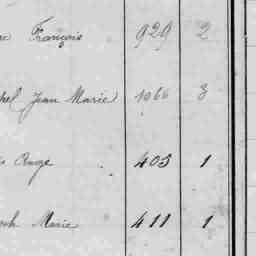 François 929 2
Jean Marie 1066 3
Ange 403 1
Marie 411 1